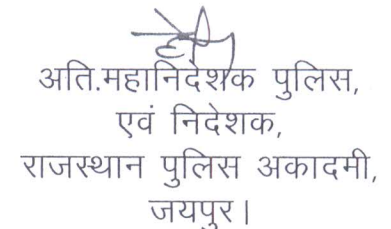 अति.महानिदेशक पुलिस,
एवं निदेशक,
राजस्थान पुलिस अकादमी,
जयपुर।